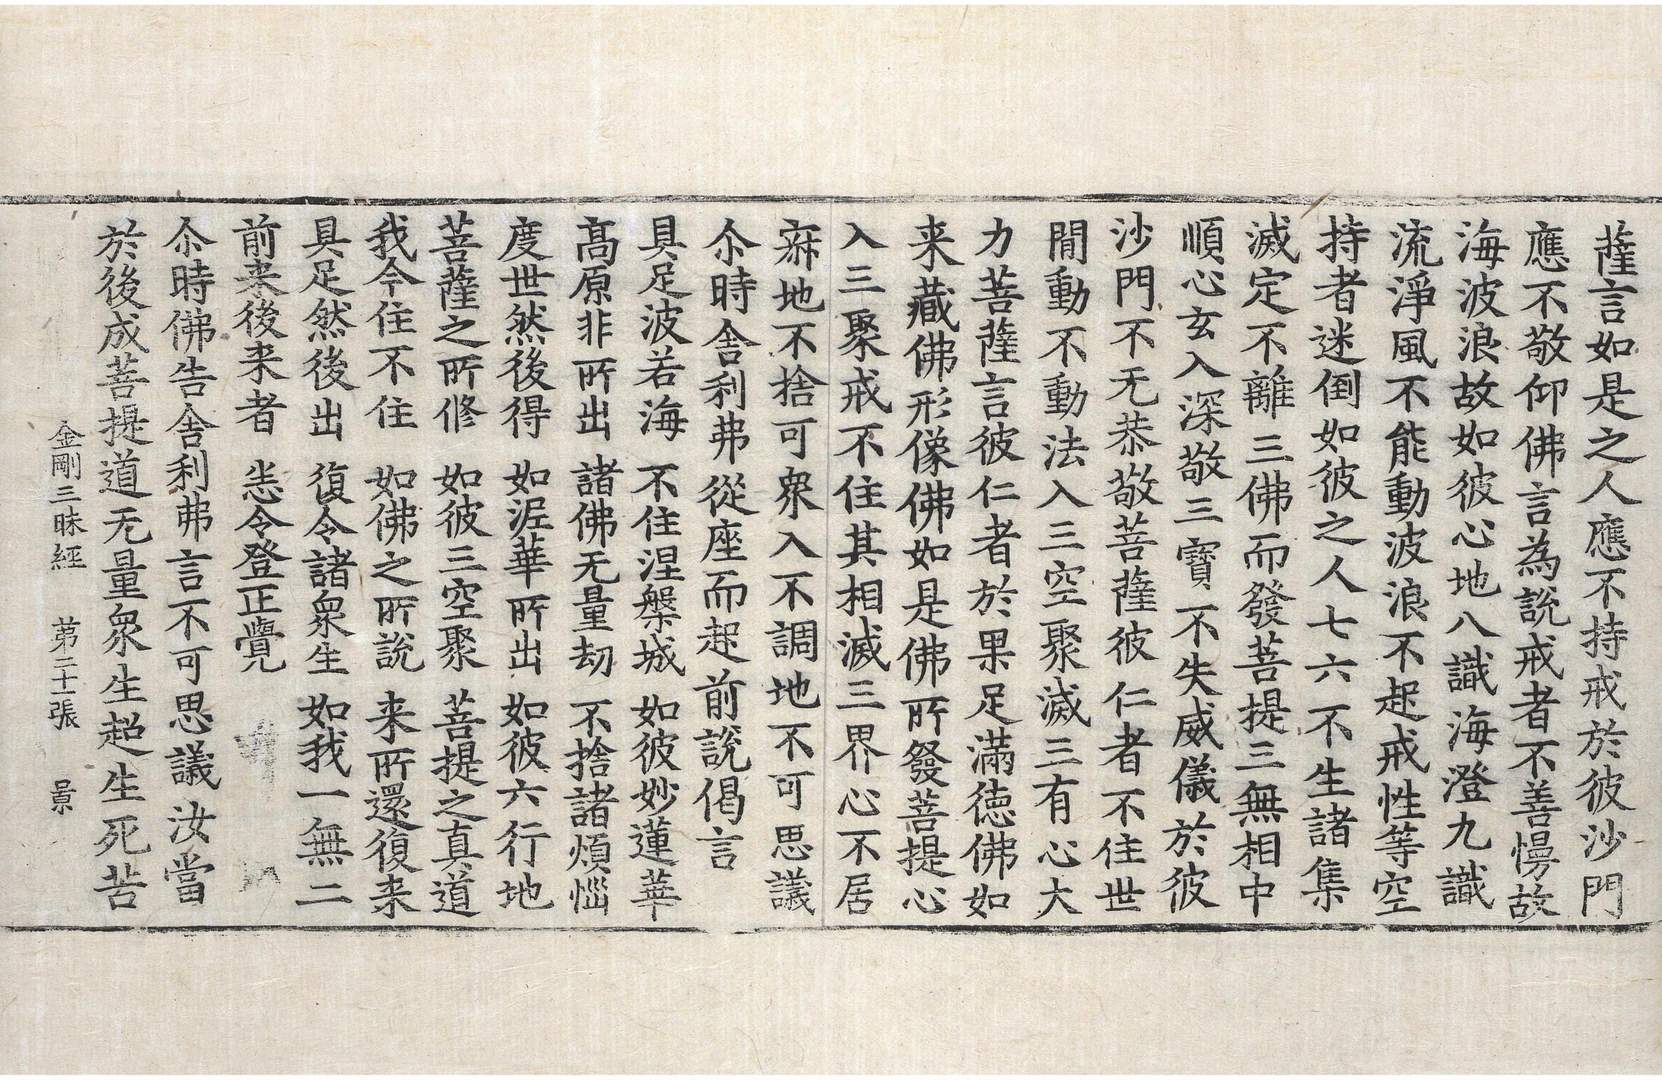 薩言如是之人應不持戒於彼沙門
應不敬仰佛言為說戒者不善慢故
海波浪故如彼心地八識海澄九識
流淨風不能動波浪不起戒性等空
持者迷倒如彼之人七六不生諸集
滅定不離三佛而發菩提三無相中
順心玄入深敬三寶不失威儀於彼
沙門不无恭敬菩薩彼仁者不住世
間動不動法入三空聚滅三有心大
力菩薩言彼仁者於果足滿德佛如
来藏佛形像佛如是佛所發菩提心
入三聚戒不住其相滅三界心不居
寂地不捨可衆入不調地不可思議
尒時舍利弗從座而起前說偈言
具足波若海 不住涅槃城 如彼妙蓮華
高原非所出 諸佛无量劫 不捨諸煩惱
度世然後得 如泥華所出 如彼六行地
菩薩之所修 如彼三空聚 菩提之真道
我今住不住 如佛之所說 来所還復来
具足然後出 復令諸衆生 如我一無二
前来後来者 悉令登正覺
尒時佛告舍利弗言不可思議汝當
於後成菩提道无量衆生超生死苦
金剛三昧經 第二十一張 景